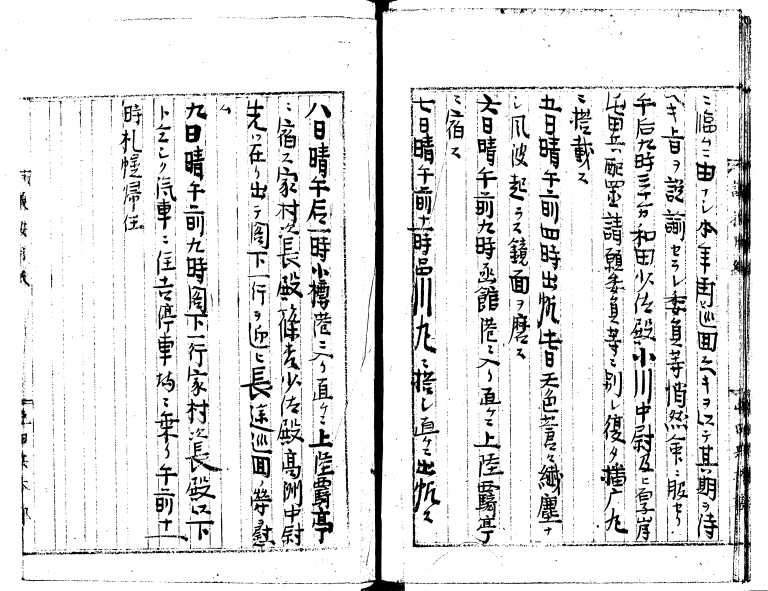 ニ臨ケニ由ナシ本年再巡回スヘキヲ以テ其期ヲ待
ヘキ旨ヲ説諭セラレ委員等悄然命ニ服セリ
午后九時三十分和田少佐殿小川中尉及ヒ厚岸
屯田兵配置請願委員等ニ別レ復タ播广丸
ニ搭載ス
五日晴午前四時出帆此日天色蒼々纖塵ナ
シ風波起ラス鏡面ヲ磨ス
六日晴午前九時函館港ニ入リ直ケニ上陸 亭
ニ宿ス
七日晴午前十一時 川丸ニ搭シ直ケニ出帆ス
八日晴午后一時小樽港ニ入リ直ケニ上陸 亭
ニ宿ス家村次長殿 少佐殿高洲中尉
先ツ在リ出テ閣下一行ヲ迎ヒ長途巡回ノ労ヲ慰
ム
九日晴午前九時閣下一行家村次長殿以下
ト仝シク汽車ニ住吉停車場ニ乗リ午前十一
時札幌帰任